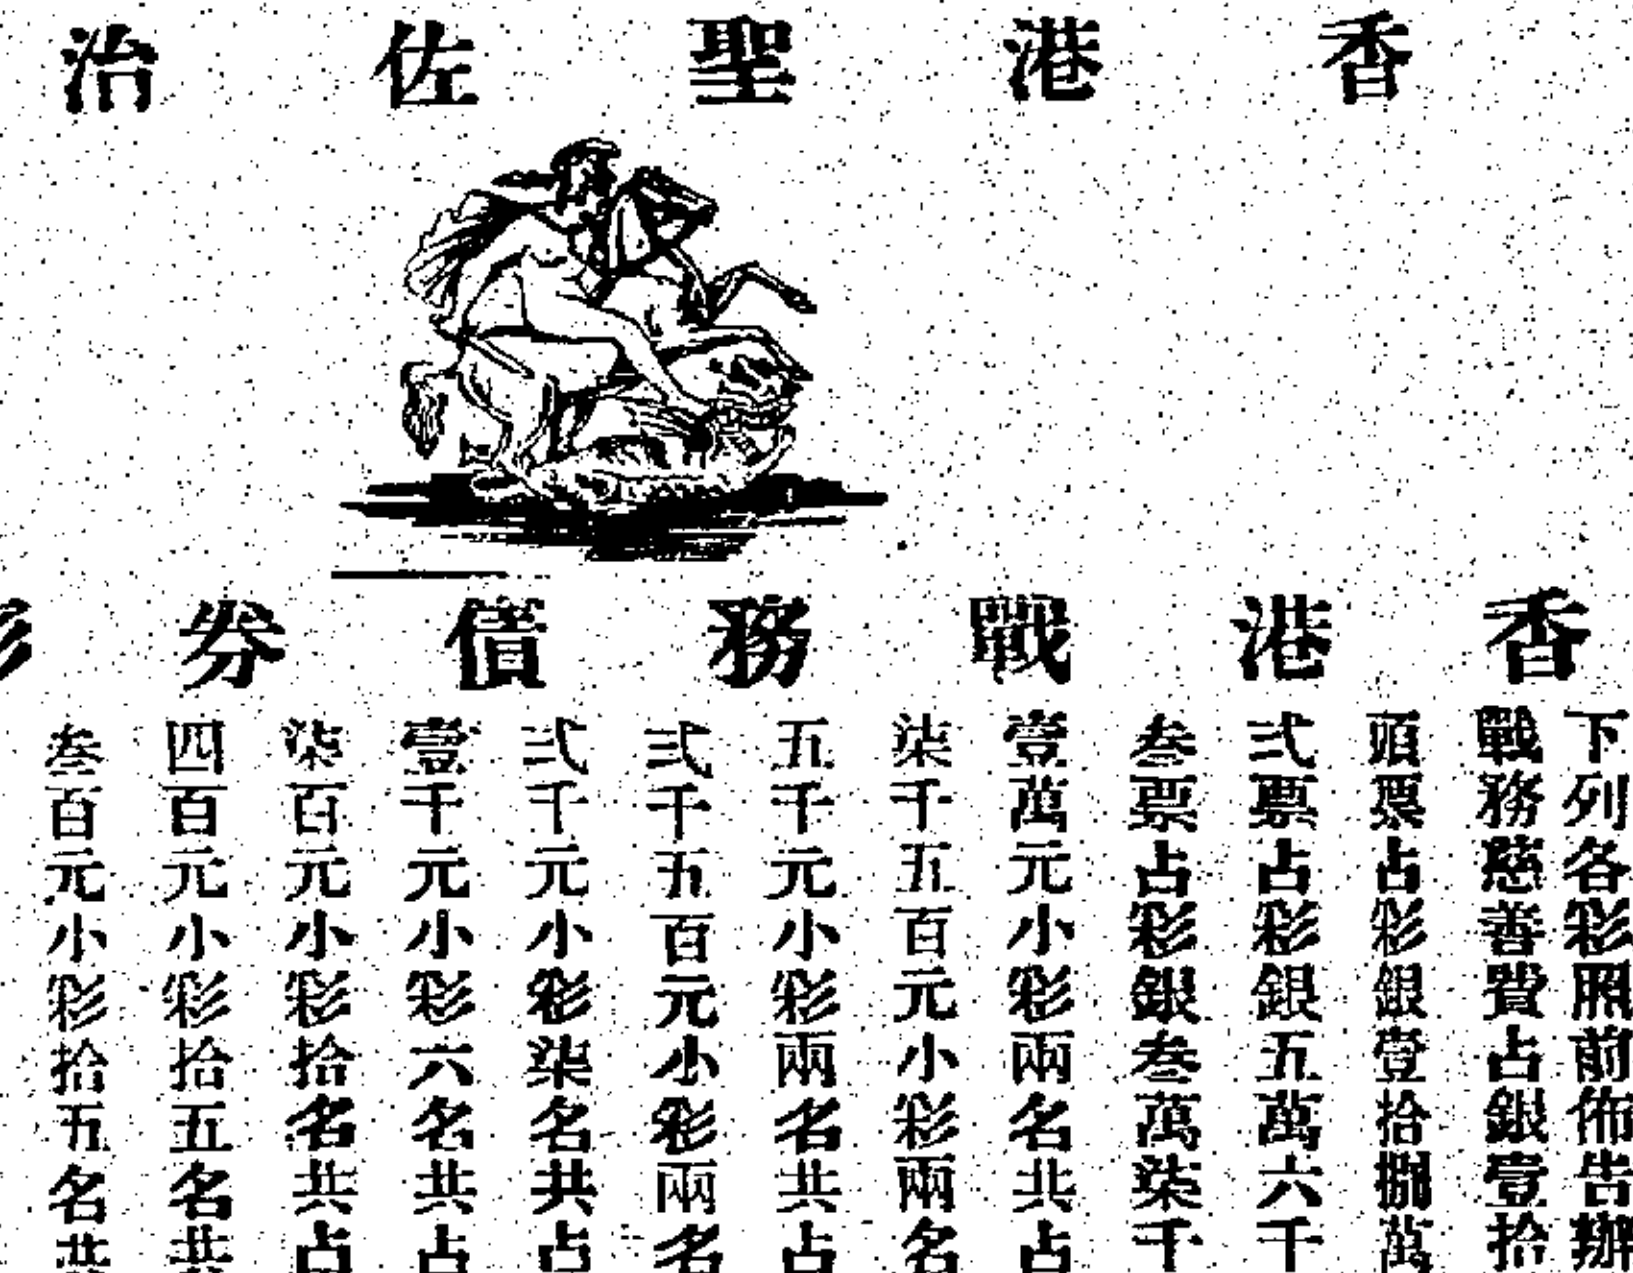 香港聖佐治
香港戰務債券彩
下列各彩照前佈告辦
戰務慈善費占銀壹拾
頭票占彩銀壹拾捌萬
弍票占彩銀五萬六千
叁票占彩銀叁萬柒千
壹萬元小彩兩名共占
柒千五百元小彩兩名
五千元小彩兩名共占
弍千五百元小彩兩名
弍千元小彩柒名共占
壹千元小彩六名共占
柒百元小彩拾名共占
四百元小彩拾五名共
叁百元小彩拾五名共